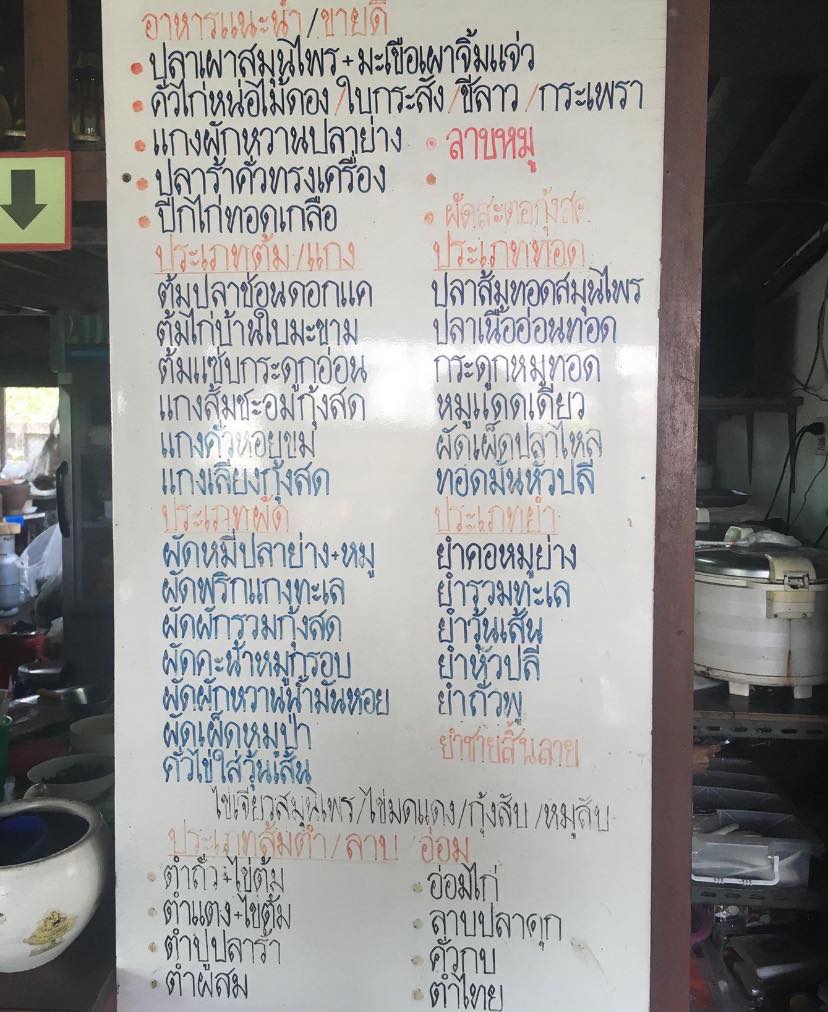 อาหารแนะนำ/ขายดี
ปลาเผาสมุนไพร+มะเขือเผาจิ้มแจ่ว
คั่วไก่หน่อไม้ดอง/ใบกระสัง/ชีลาว/กระเพรา
แกงผักหวานปลาย่าง
ลาบหมู
ปลาร้าคั่วทรงเครื่อง
ปีกไก่ทอดเกลือ
ผัดสะตอกุ้งสด
ประเภทต้ม/แกง
ต้มปลาช่อนดอกแค
ต้มไก่บ้านใบมะขาม
ต้มแซ่บกระดูกอ่อน
แกงส้มชะอมกุ้งสด
แกงคั่วหอยขม
แกงเลียงกุ้งสด
ประเภททอด
ปลาส้มทอดสมุนไพร
ปลาเนื้ออ่อนทอด
กระดูกหมูทอด
หมูแดดเดียว
ผัดเผ็ดปลาไหล
ทอดมันหัวปลี
ประเภทผัด
ผัดหมี่ปลาย่าง+หมู
ผัดพริกแกงทะเล
ผัดผักรวมกุ้งสด
ผัดคะน้าหมูกรอบ
ผัดผักหวานน้ำมันหอย
ผัดเผ็ดหมูป่า
คั่วไข่ใส่วุ้นเส้น
ประเภทยำ
ยำคอหมูย่าง
ยำรวมทะเล
ยำวุ้นเส้น
ยำหัวปลี
ยำถั่วพู
ยำชายสิ้นลาย
ไข่เจียวสมุนไพร/ไข่มดแดง/กุ้งสับ/หมูสับ
ประเภทส้มตำ/ลาบ อ่อม
ตำถั่ว+ไข่ต้ม
ตำแตง+ไข่ต้ม
ตำปูปลาร้า
ตำผสม
อ่อมไก่
ลาบปลาดุก
คั่วกบ
ตำไทย